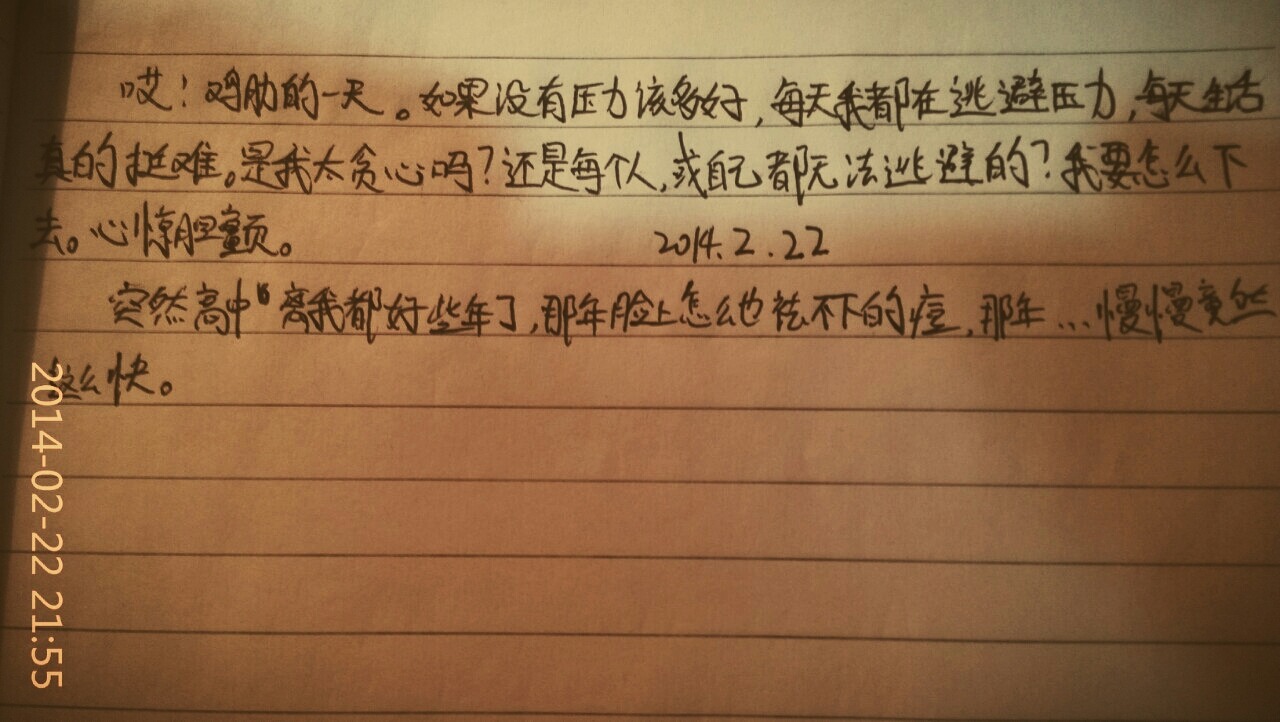 哎！鸡肋的一天。如果没有压力该多好，每天我都在逃避压力，每天生活
真的挺难。是我太贪心吗？还是每个人，或自己都无法逃避的？我要怎么下
去。心惊胆颤。 2014.2.22
突然高中离我都好些年了，那年脸上怎么也祛不下的痘，那年…慢慢竟然
这么快。
2014-02-22 21:55